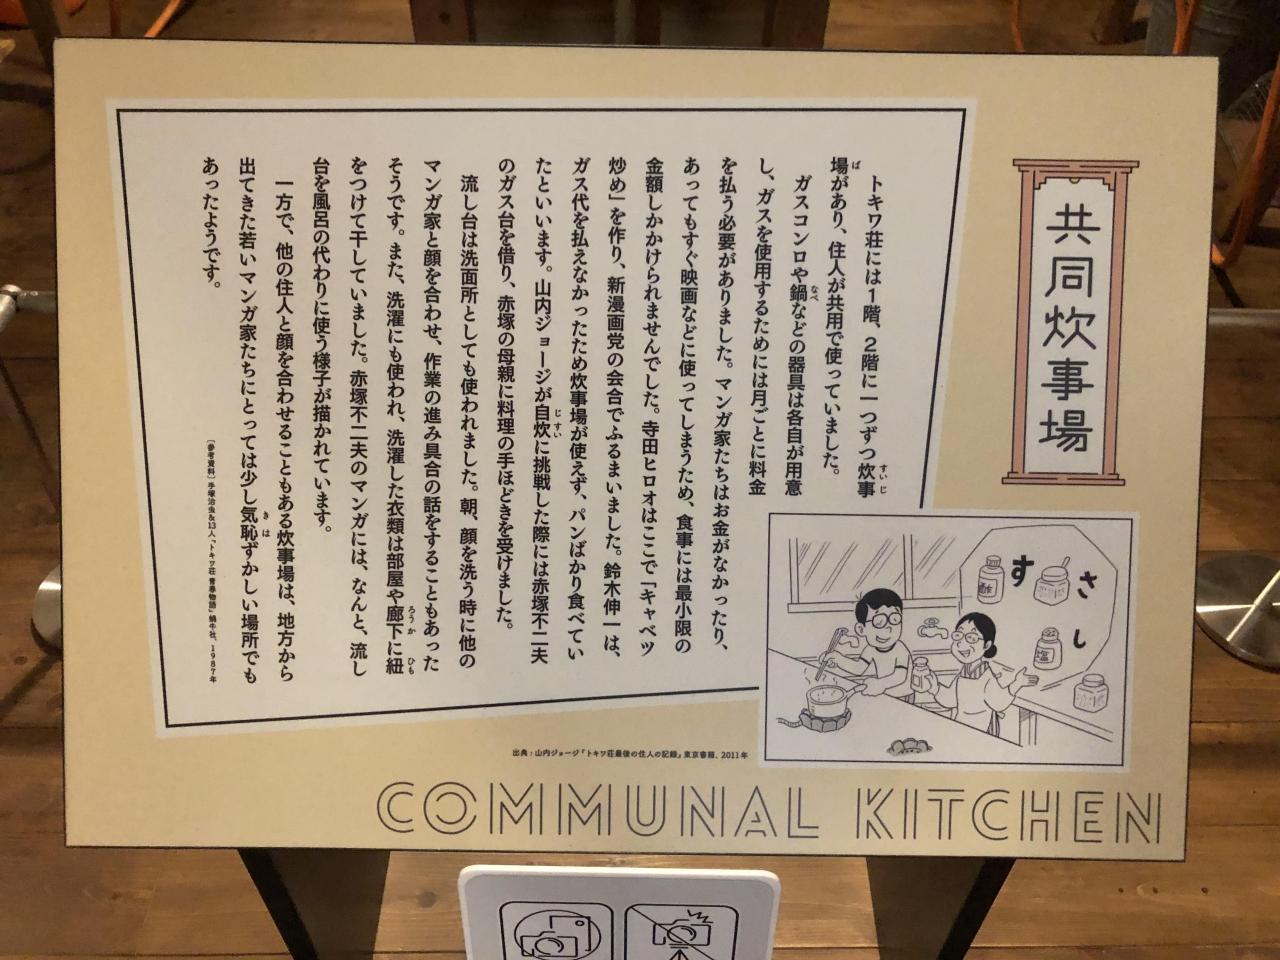 共同炊事場
トキワ荘には1階、2階に一つずつ炊事
すいじ
場があり、住人が共用で使っていました。
ば
ガスコンロや鍋などの器具は各自が用意
なべ
し、ガスを使用するためには月ごとに料金
を払う必要がありました。マンガ家たちはお金がなかったり、
あってもすぐ映画などに使ってしまうため、食事には最小限の
金額しかかけられませんでした。寺田ヒロオはここで「キャベツ
炒め」を作り、新漫画党の会合でふるまいました。鈴木伸一は、
ガス代を払えなかったため炊事場が使えず、パンばかり食べてい
たといいます。山内ジョージが自炊に挑戦した際には赤塚不二夫
じすい
のガス台を借り、赤塚の母親に料理の手ほどきを受けました。
流し台は洗面所としても使われました。朝、顔を洗う時に他の
マンガ家と顔を合わせ、作業の進み具合の話をすることもあった
そうです。また、洗濯にも使われ、洗濯した衣類は部屋や廊下に紐
ろうか ひも
をつけて干していました。赤塚不二夫のマンガには、なんと、流し
台を風呂の代わりに使う様子が描かれています。
一方で、他の住人と顔を合わせることもある炊事場は、地方から
出てきた若いマンガ家たちにとっては少し気恥ずかしい場所でも
きは
あったようです。
[参考資料] 手塚治虫&13人『トキワ荘 青春物語』蝸牛社、1987年
さ
し
す
酢
塩
出典:山内ジョージ『トキワ荘最後の住人の記録』東京書籍、2011年
COMMUNAL KITCHEN